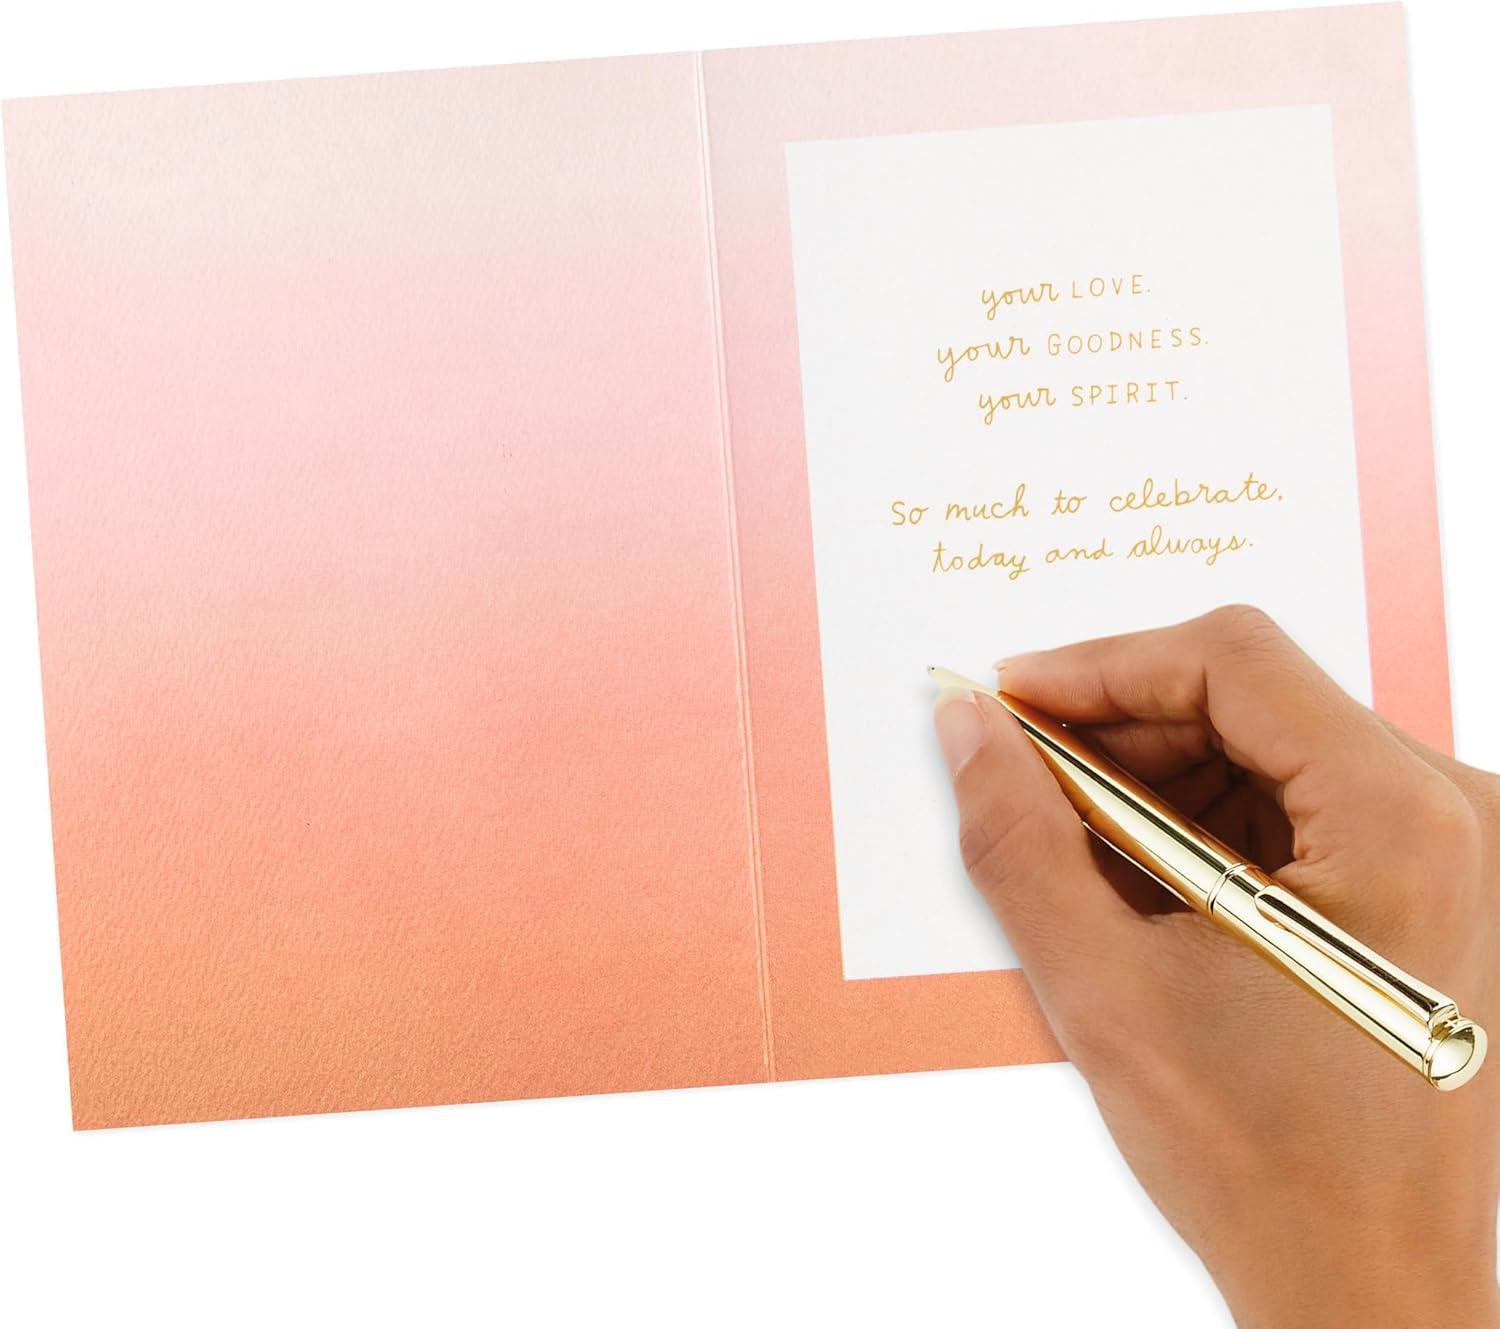 your LOVE.
your GOODNESS.
your SPIRIT.
So much to celebrate,
today and always.